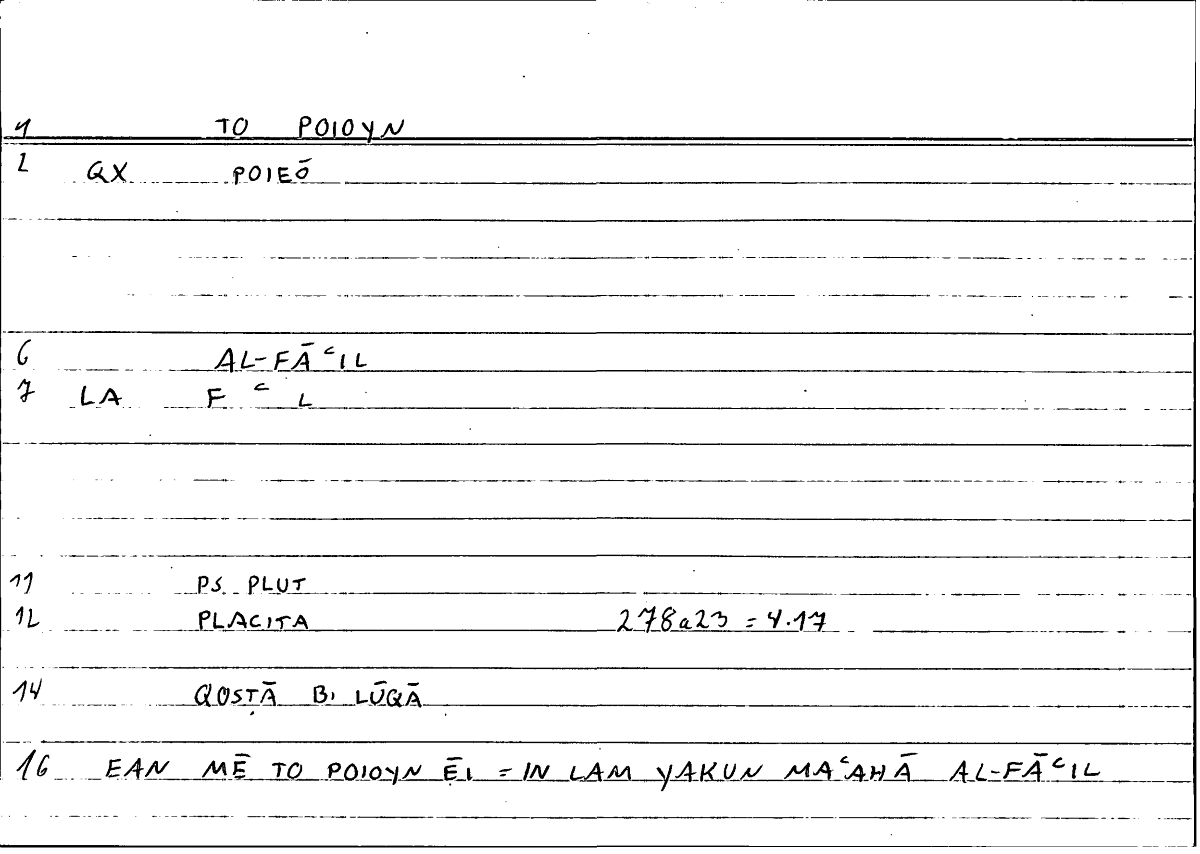 1 TO POIOYN
2 QX POIEŌ
6 AL-FĀʿIL
7 LA F ʿ L
11 PS. PLUT
12 PLACITA 278a23 = 4.17
14 QOSṬĀ B. LŪQĀ
16 EAN MĒ TO POIOYN Ẹ̄I = IN LAM YAKUN MAʿAHĀ AL-FĀʿIL